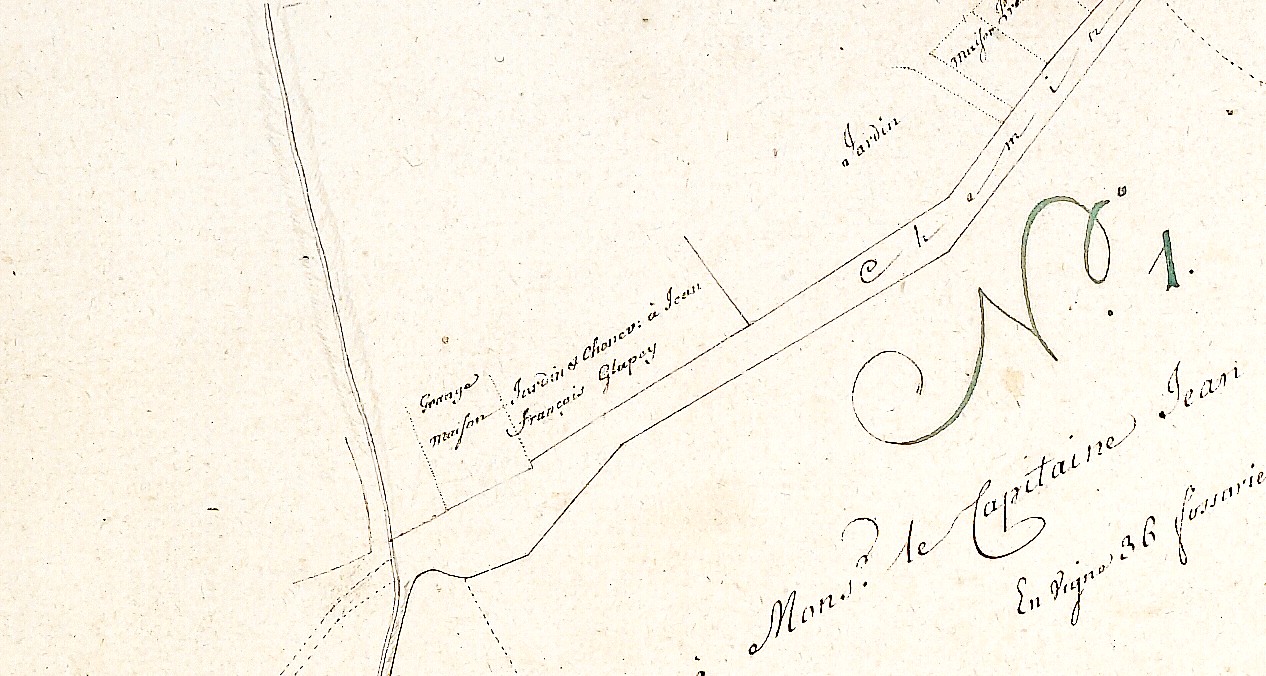 Maison
Jardin
Chemin
Grange
Maison
Jardin et Chenev: à Jean
François
N.º 1.
à Mons.r le Capitaine Jean
En Vigne 36 fossorie